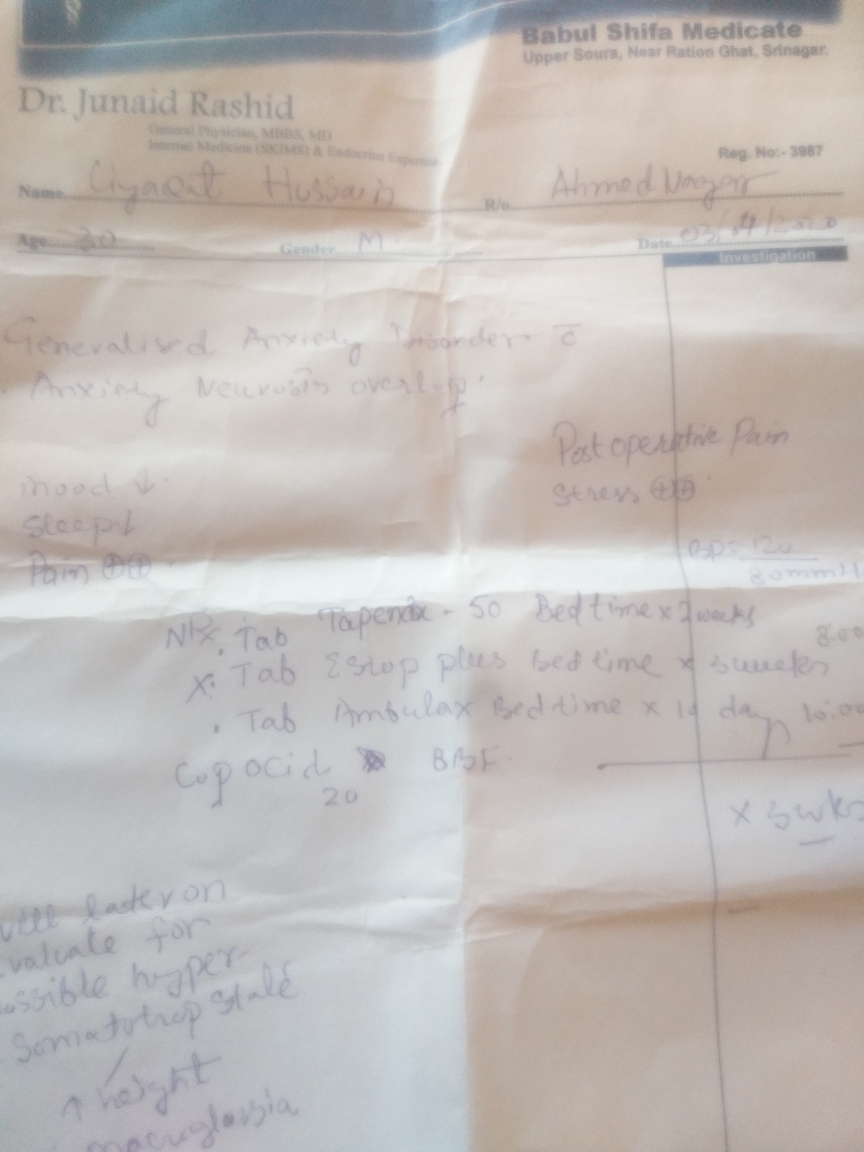 Babul Shifa Medicate
Upper Soura, Near Ration Ghat, Srinagar.
Dr. Junaid Rashid
General Physician, MBBS, MD
Internal Medicine (SKIMS) & Endocrine Expertise
Reg. No:- 3987
Name Liyaqat Hussain R/o Ahmed Nagar
Age 30 Gender M. Date 03/04/2020
Investigation
Generalised Anxiety Disorder c̄
Anxiety Neurosis overlap.
Post operative Pain
Stress ⊕⊕
mood ↓
Sleep↓
Pain ⊕⊕
BP = 120
80 mmH
Tab 50 Bed time x 2 weeks
8:00
Tab Estop plus bed time x 3 weeks
Tab Ambulax Bed time x day 10:00
Cap ocid BBF
20
x 3 wks
will later on
evaluate for
possible hyper-
Somatotrop state
↑ height
macroglossia